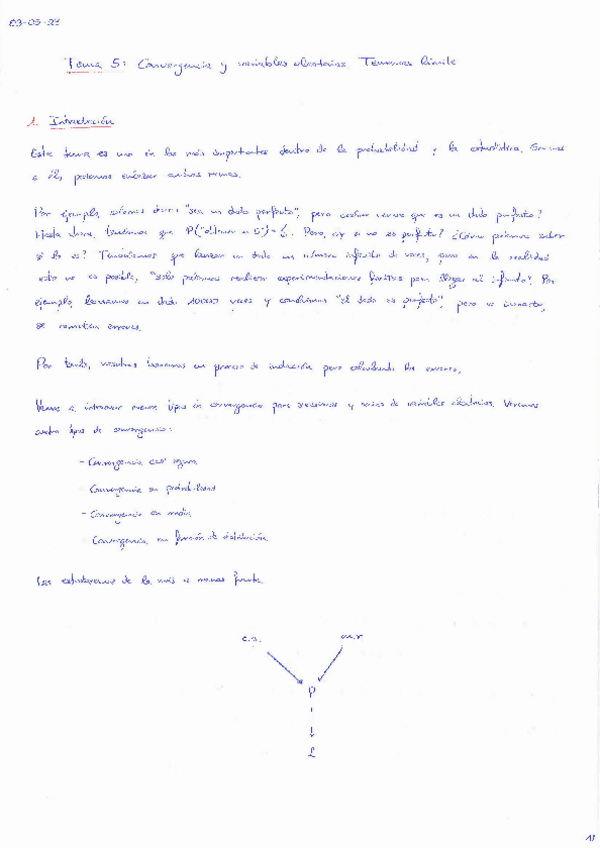 03-05-23
Tema 5: Convergencia y variables aleatorias Teoremas límite
1. Introducción
Este tema es uno de los más importantes dentro de la probabilidad y la estadística. Gracias
a él, podemos enlazar ambas ramas.
Por ejemplo, solemos decir "sea un dado perfecto", pero cómo que es un dado perfecto?
Hasta ahora, teníamos que P("obtener un 5") = Pero, ¿y si no es perfecto? ¿Cómo podemos saber
si lo es? Tendríamos que lanzar un dado un número infinito de veces, pero en la realidad
esto no es posible, "solo podemos realizar experimentaciones finitas para llegar al infinito". Por
ejemplo, lanzamos un dado 10000 veces y concluimos "el dado es perfecto", pero es incorrecto,
se cometen errores.
Por tanto, nosotros haremos un proceso de inducción pero calculando los errores.
Vamos a introducir tipos de convergencia para sucesiones y series de variables aleatorias. Veremos
cuatro tipos de convergencia:
- Convergencia casi segura
- Convergencia en probabilidad
- Convergencia en media
- Convergencia en función de distribución
Las estudiaremos de la más a menos fuerte.
c.s. m.r
P
L